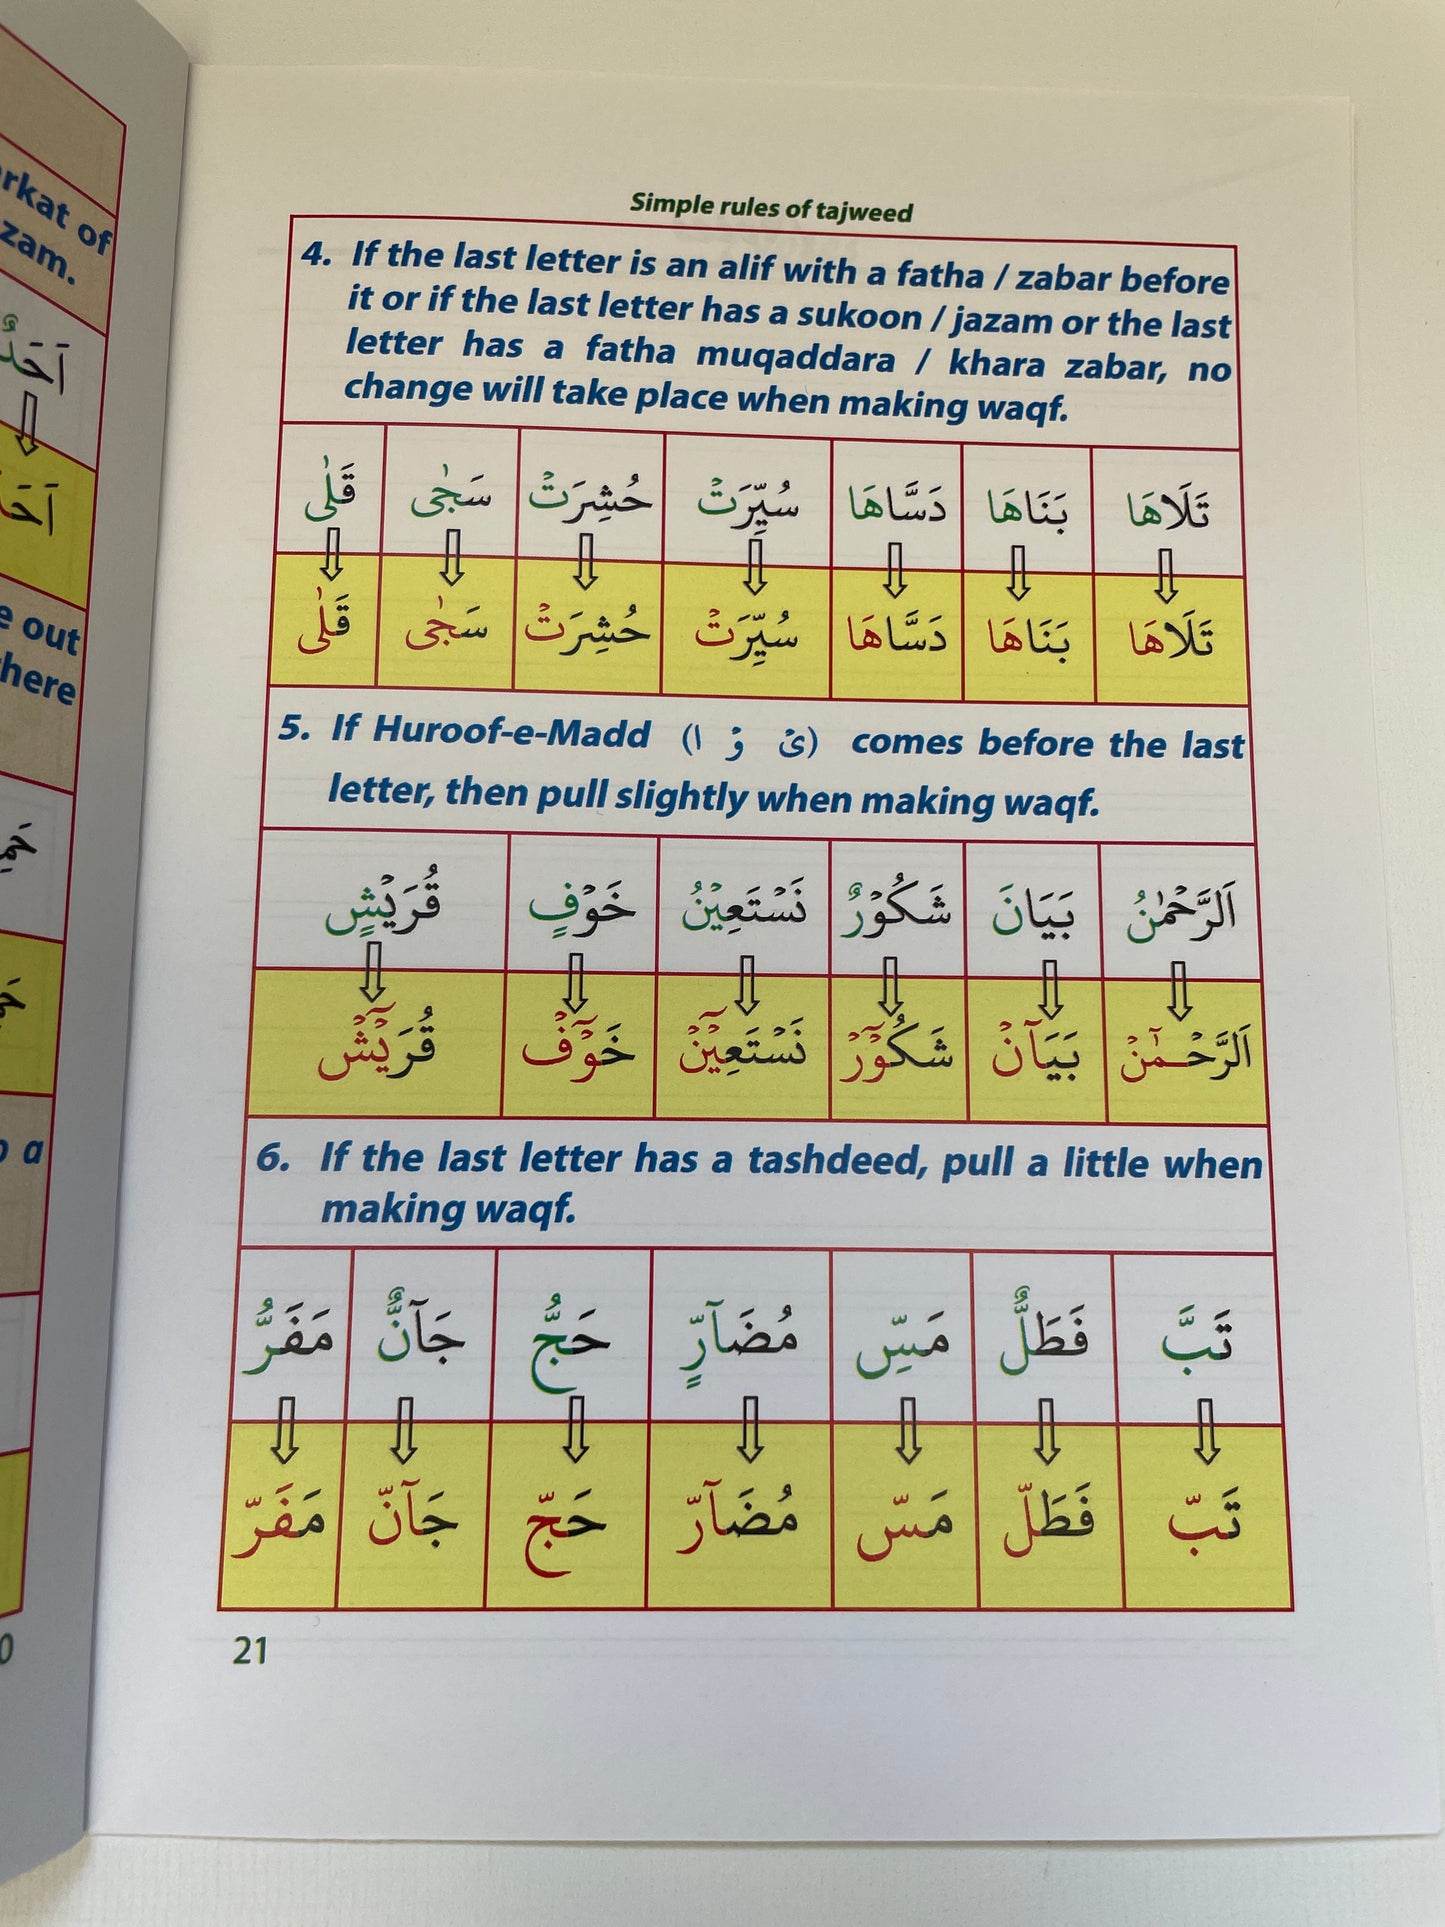 rkat of
zam.
اَحَدٌ
e out
here
o a
0
Simple rules of tajweed
4. If the last letter is an alif with a fatha / zabar before
it or if the last letter has a sukoon / jazam or the last
letter has a fatha muqaddara / khara zabar, no
change will take place when making waqf.
تَلَاهَا بَنَاهَا دَسَّاهَا سُيِّرَتْ حُشِرَتْ سَجٰى قَلٰى
تَلَاهَا بَنَاهَا دَسَّاهَا سُيِّرَتْ حُشِرَتْ سَجٰى قَلٰى
5. If Huroof-e-Madd (ا وْ یْ) comes before the last
letter, then pull slightly when making waqf.
اَلرَّحْمٰنُ بَيَانَ شَكُوْرٌ نَسْتَعِيْنُ خَوْفٍ قُرَيْشٍ
اَلرَّحْـمٰٓنْ بَيَآنْ شَكُوْٓرْ نَسْتَعِيْٓنْ خَوْٓفْ قُرَيْٓشْ
6. If the last letter has a tashdeed, pull a little when
making waqf.
تَبَّ فَطَلٌّ مَسِّ مُضَآرٍّ حَجُّ جَآنٌّ مَفَرُّ
تَبّ فَطَلّ مَسّ مُضَآرّ حَجّ جَآنّ مَفَرّ
21